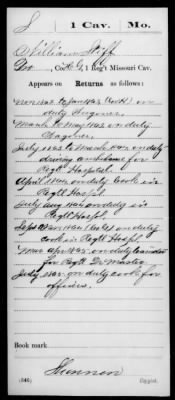 S | 1 Cav. | Mo.
William Stiff
Pvt, Co. G, 1 Reg't Missouri Cav.
Appears on Returns as follows:
Nov 1862 to Jan 1863 on
duty Wagoner
March to May 1863 on duty
Wagoner
July 1863 to March on duty
driving ambulance for
Regtl Hospital.
April on duty Cook in
Regtl Hospl
July Aug 1864 on duty in
Regtl Hospl.
Sept on duty
cook in Regtl Hospl.
Mar Apr 1865 on duty teamster
for Regtl Qr Master
July 1865 on duty cook for
officers.
Book mark
Shannon
(546) Copyist.